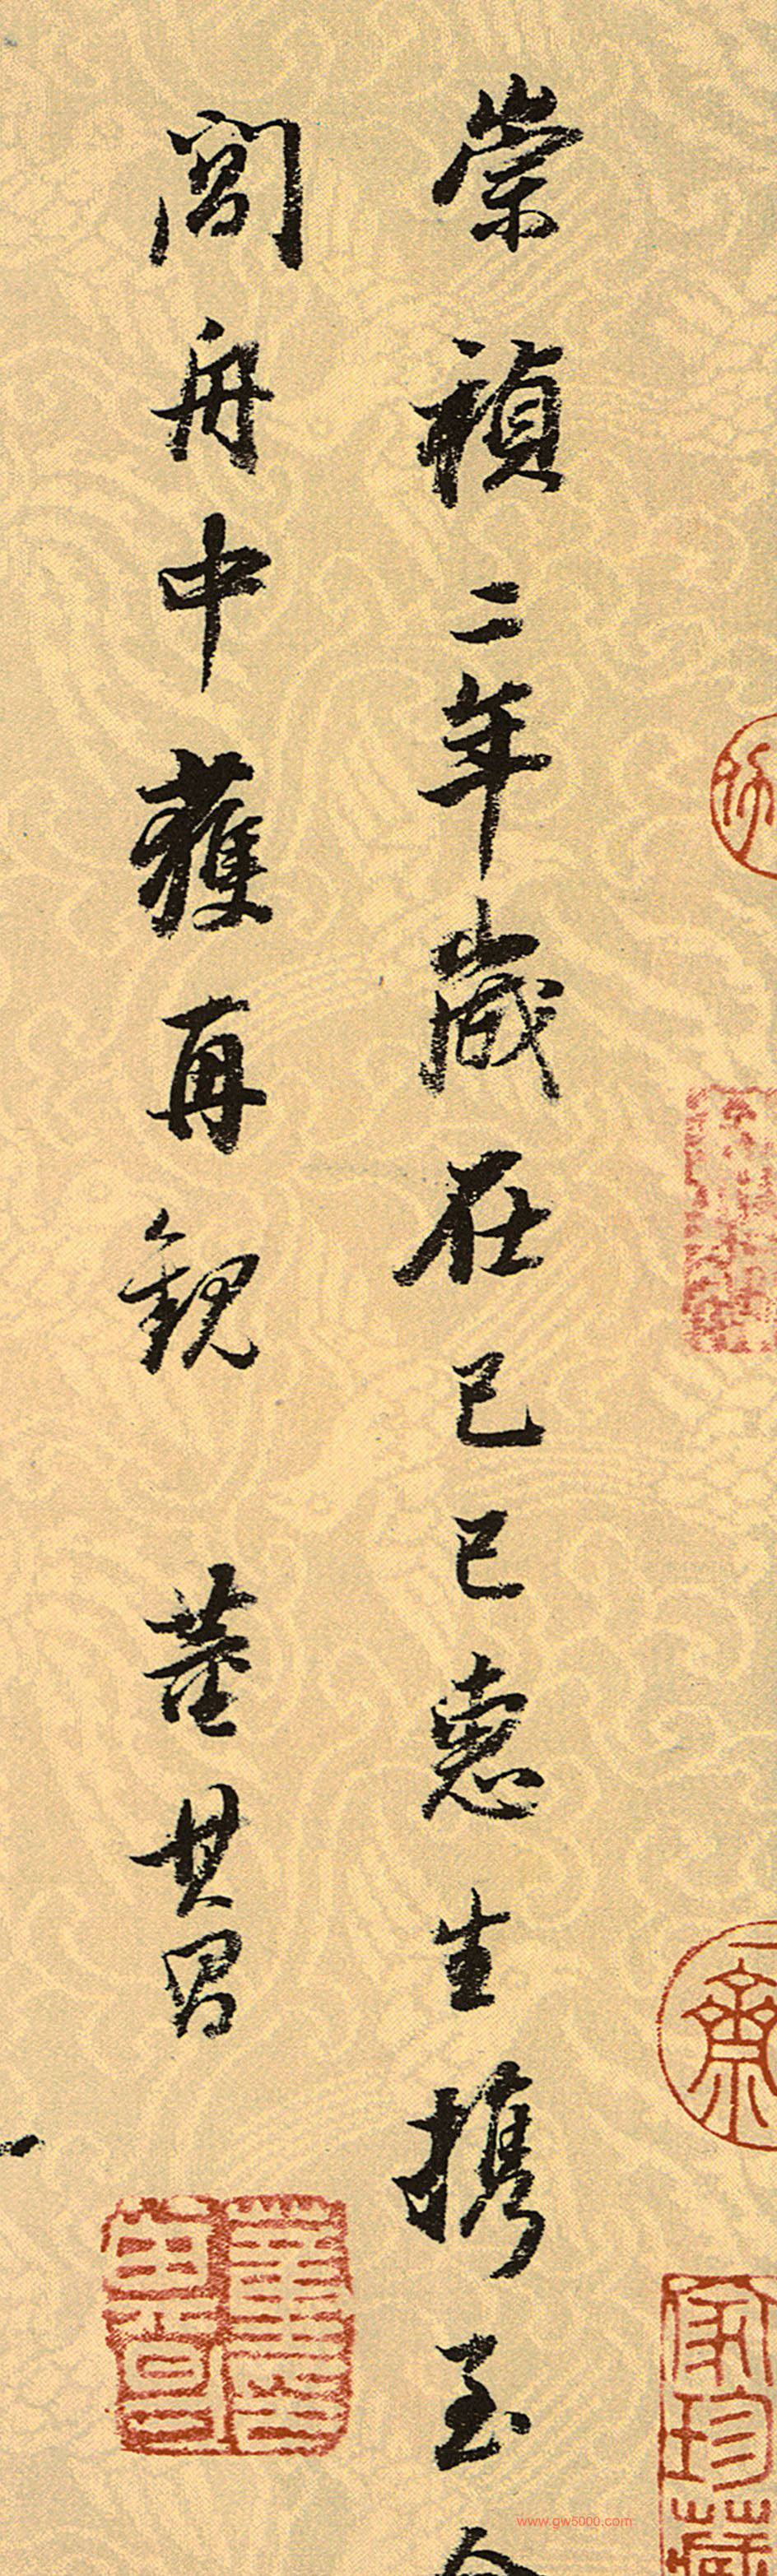 崇禎二年歲在己巳惠生攜至金
閶舟中獲再觀 董其昌
家珍藏
www.gw5000.com